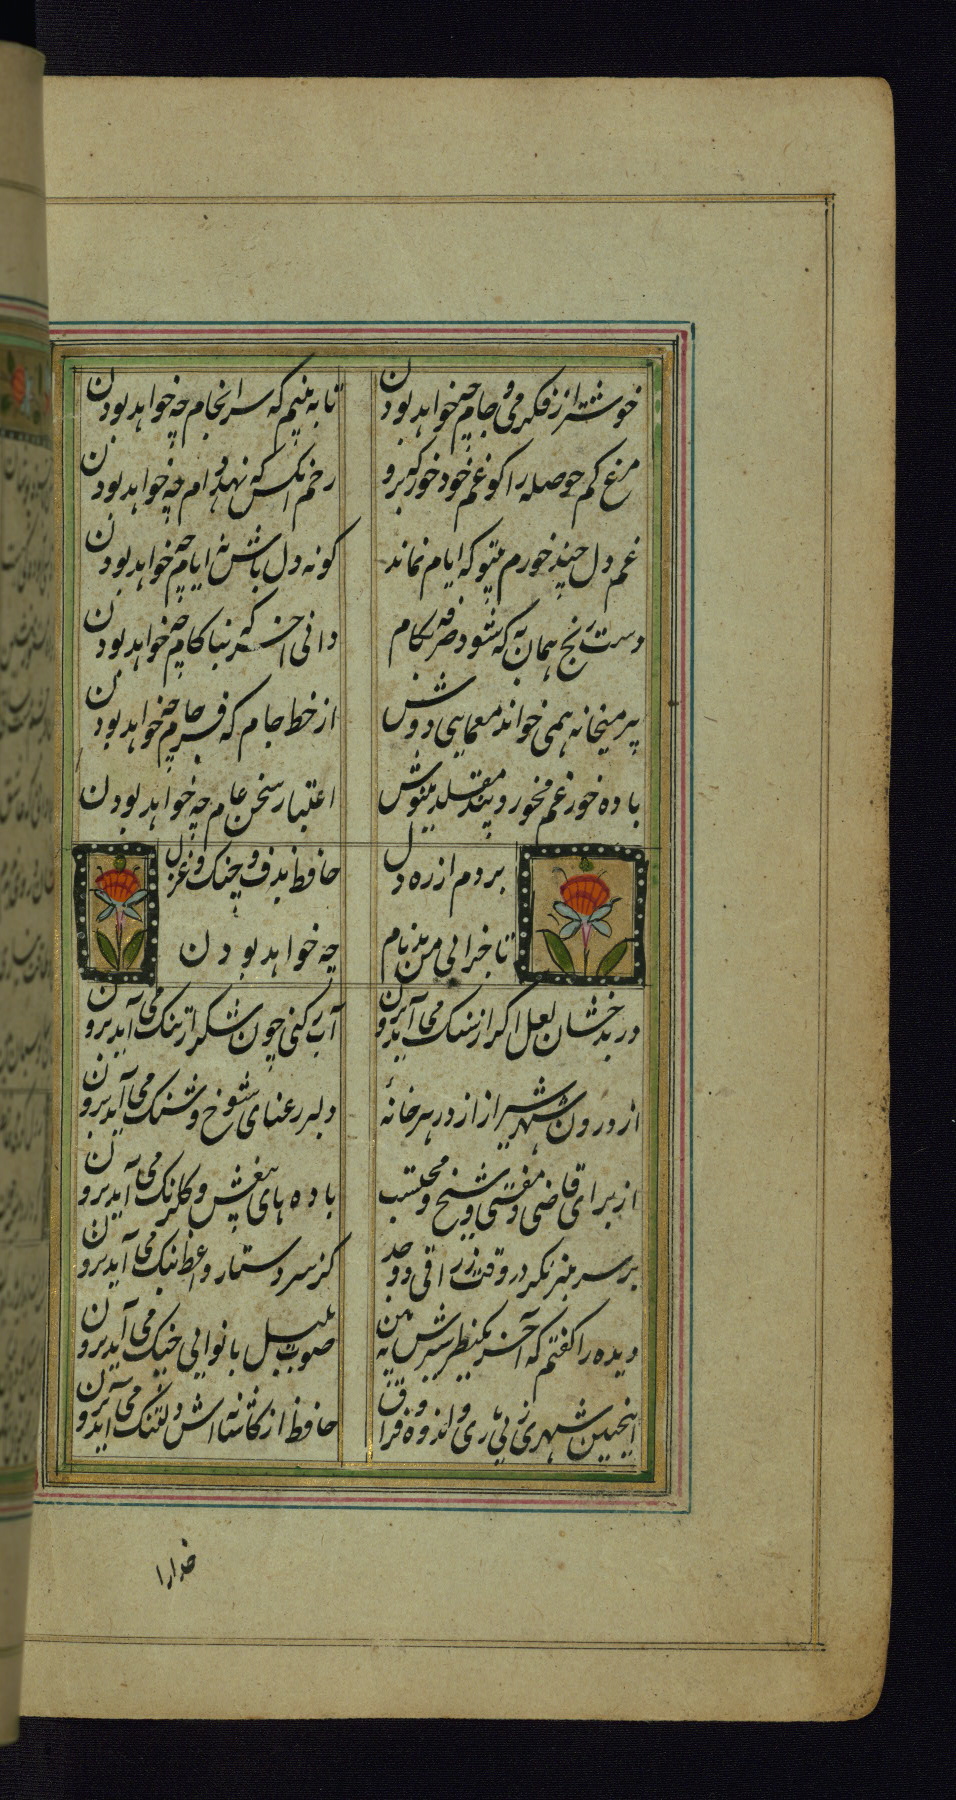 خوشتر از فکر می و جام چه خواهد بودن
تا به بینیم که سرانجام چه خواهد بودن
مرغ کم حوصله را کو غم خود خور که برو
رحم آنکس که نهد دام چه خواهد بودن
غم دل چند خورم متو که ایام نماند
کو نه دل باش نه ایام چه خواهد بودن
دست رنج همان به که شود صرفه کام
دانی آخر که بناکام چه خواهد بودن
پیر میخانه همی خواند معمایی دوش
از خط جام که فرجام چه خواهد بودن
باده خور غم مخور و پند مقلد منیوش
اعتبار سخن عام چه خواهد بودن
بردم از ره دل
حافظ بدف و چنک و غزل
تا جزایی من بدنام
چه خواهد بودن
در بدخشان لعل اکر از سنک می آید برون
آب رکنی چون شکر از تنک می آید برون
از درون شهر شیراز از در هر خانهٔ
دلبر رعنای شوخ و شنک می آید برون
از برای قاضی و مفتی و شیخ و محتسب
باده های بیغش و کلرنک می آید برون
بر سر منبر نکر در وقت زراقی و وجد
کز سر دستار واعظ بنک می آید برون
دیده را کفتم که آخر یکنظر سیرش به من
صوت بلبل با نوایی چنک می آید برون
اینچنین شهری ز بی یاری و اندوه فراق
حافظ از کاشانه اش دلتنک می آید برون
خدارا